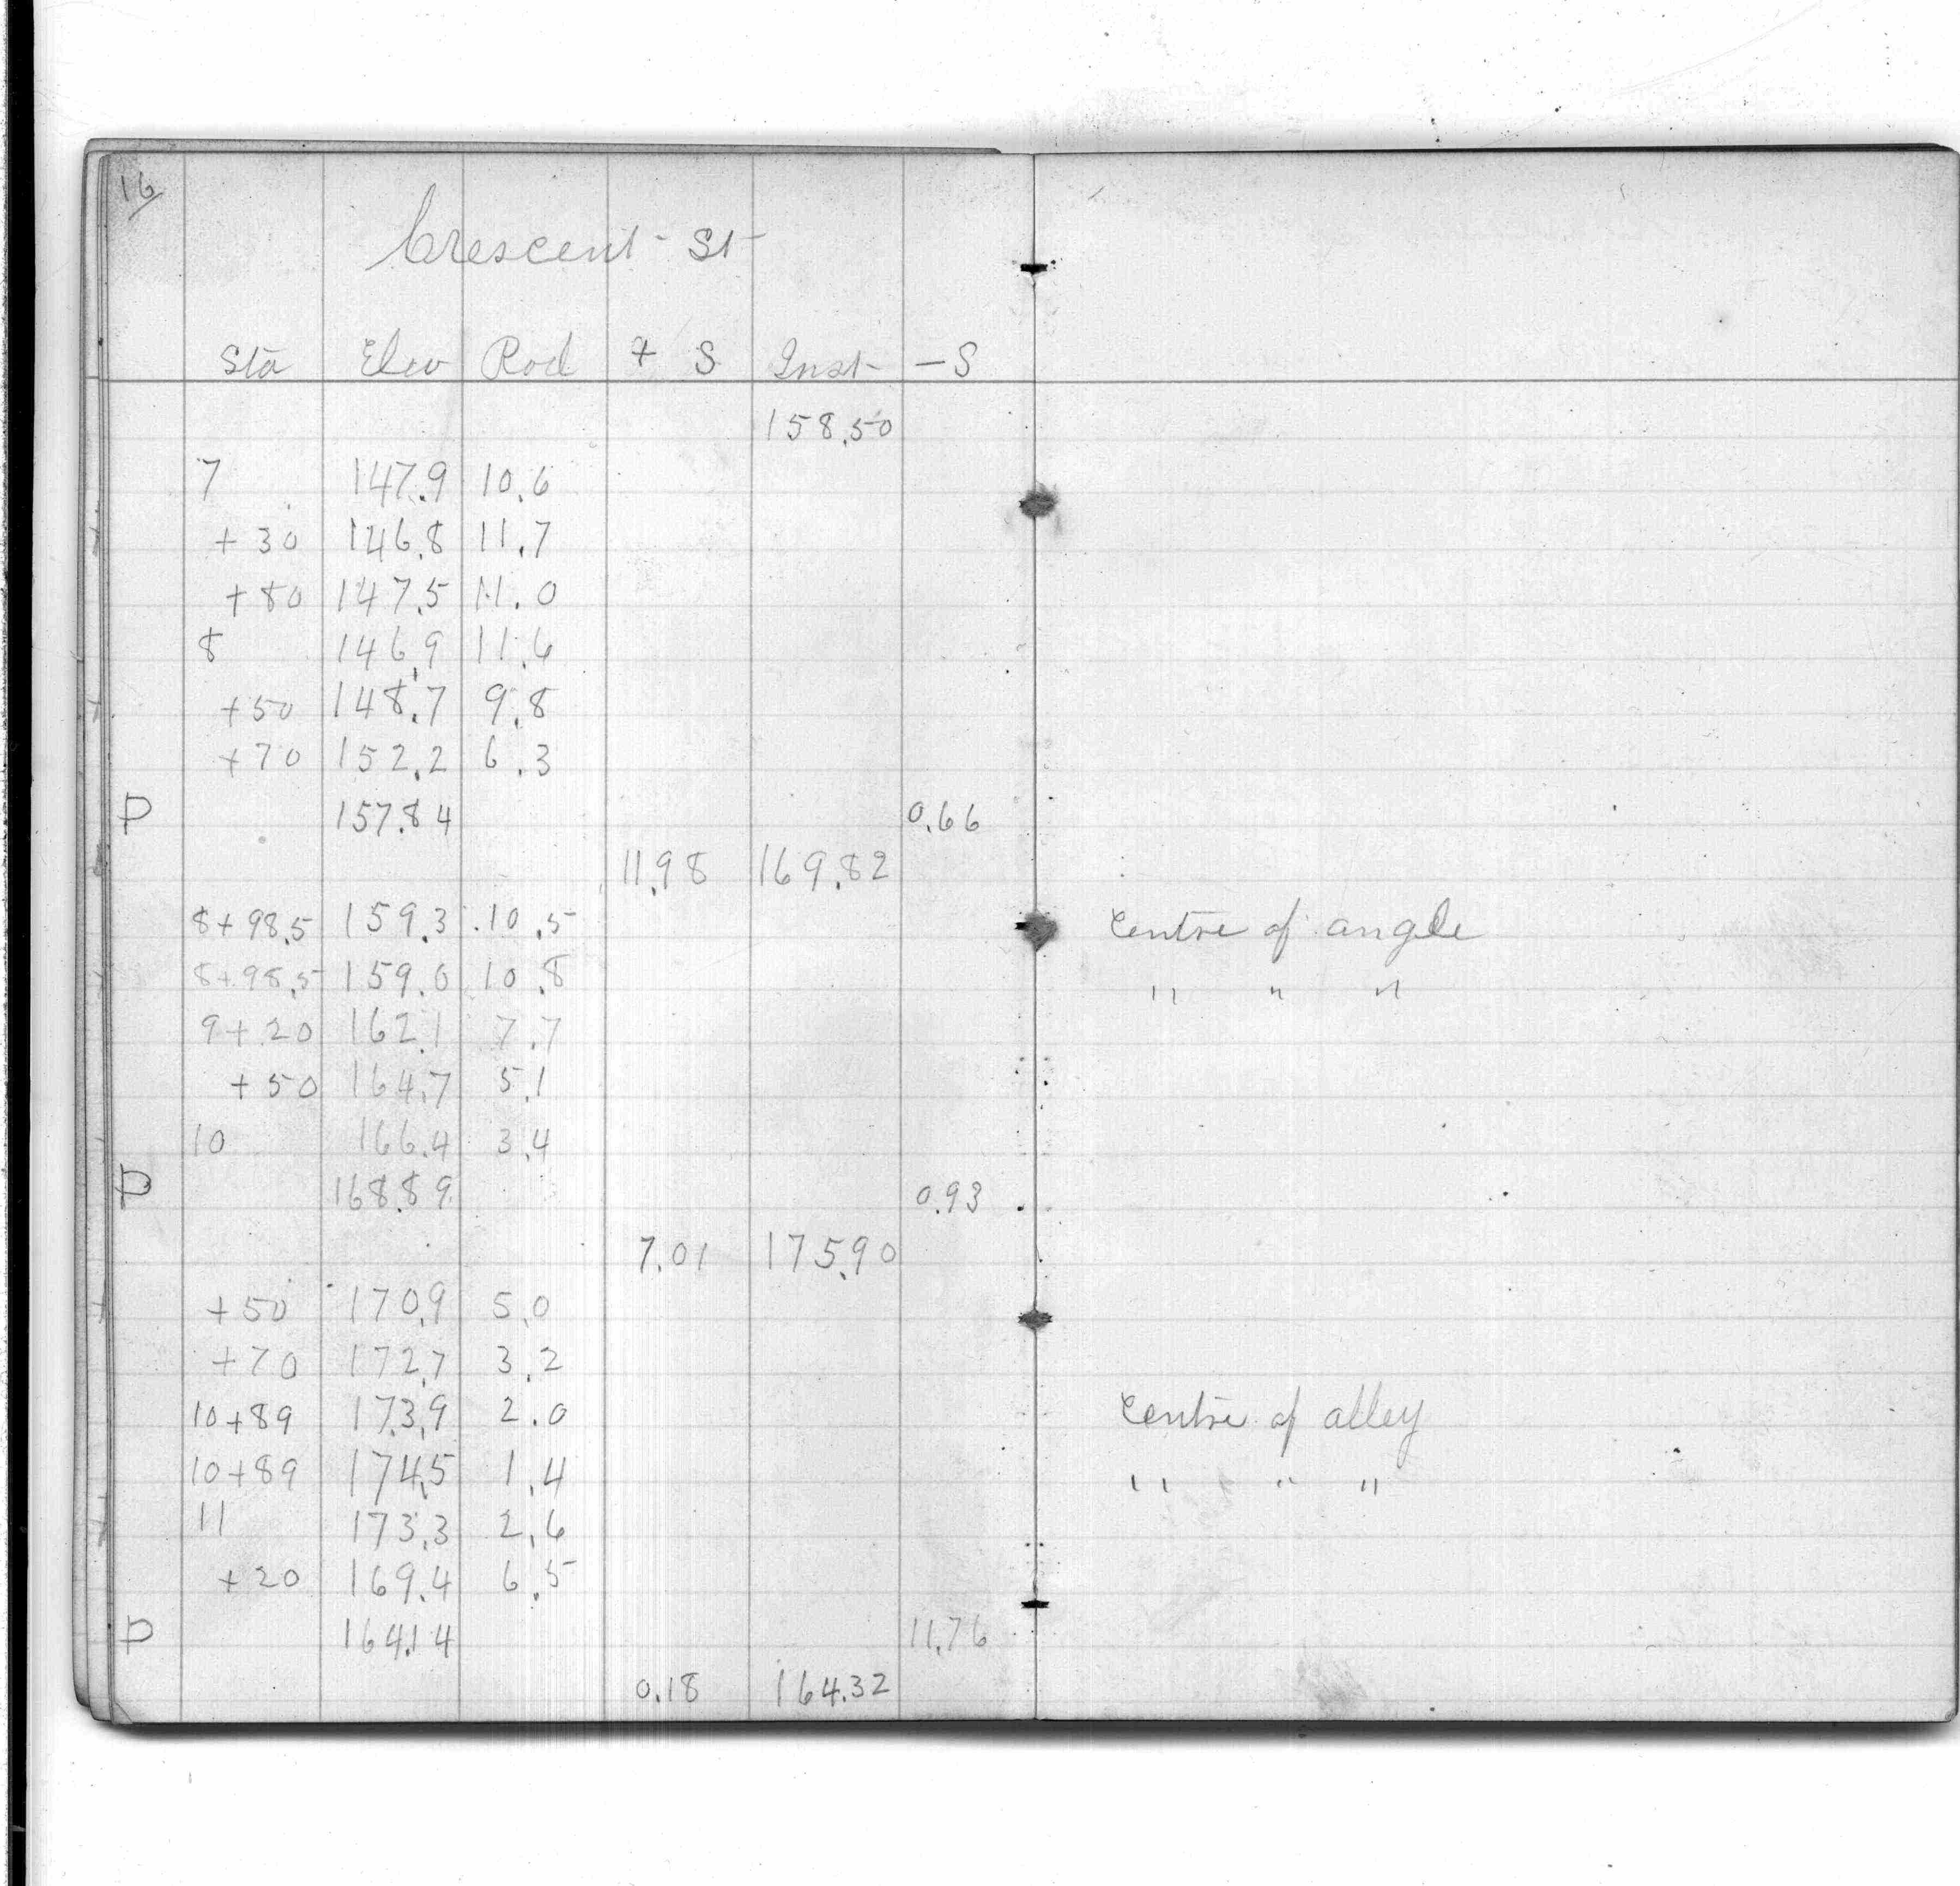 16
Crescent St
Sta Elev Rod + S Inst - S
158.50
7 147.9 10.6
+ 30 146.8 11.7
+ 80 147.5 11.0
8 146.9 11.6
+ 50 148.7 9.8
+ 70 152.2 6.3
P 157.84 0.66
11.98 169.82
8 + 98.5 159.3 10.5 Centre of angle
8 + 98.5 159.0 10.8 " " "
9 + 20 162.1 7.7
+ 50 164.7 5.1
10 166.4 3.4
P 168.89 0.93
7.01 175.90
+ 50 170.9 5.0
+ 70 172.7 3.2
10 + 89 173.9 2.0 Centre of alley
10 + 89 174.5 1.4 " " "
11 173.3 2.6
+ 20 169.4 6.5
P 164.14 11.76
0.18 164.32